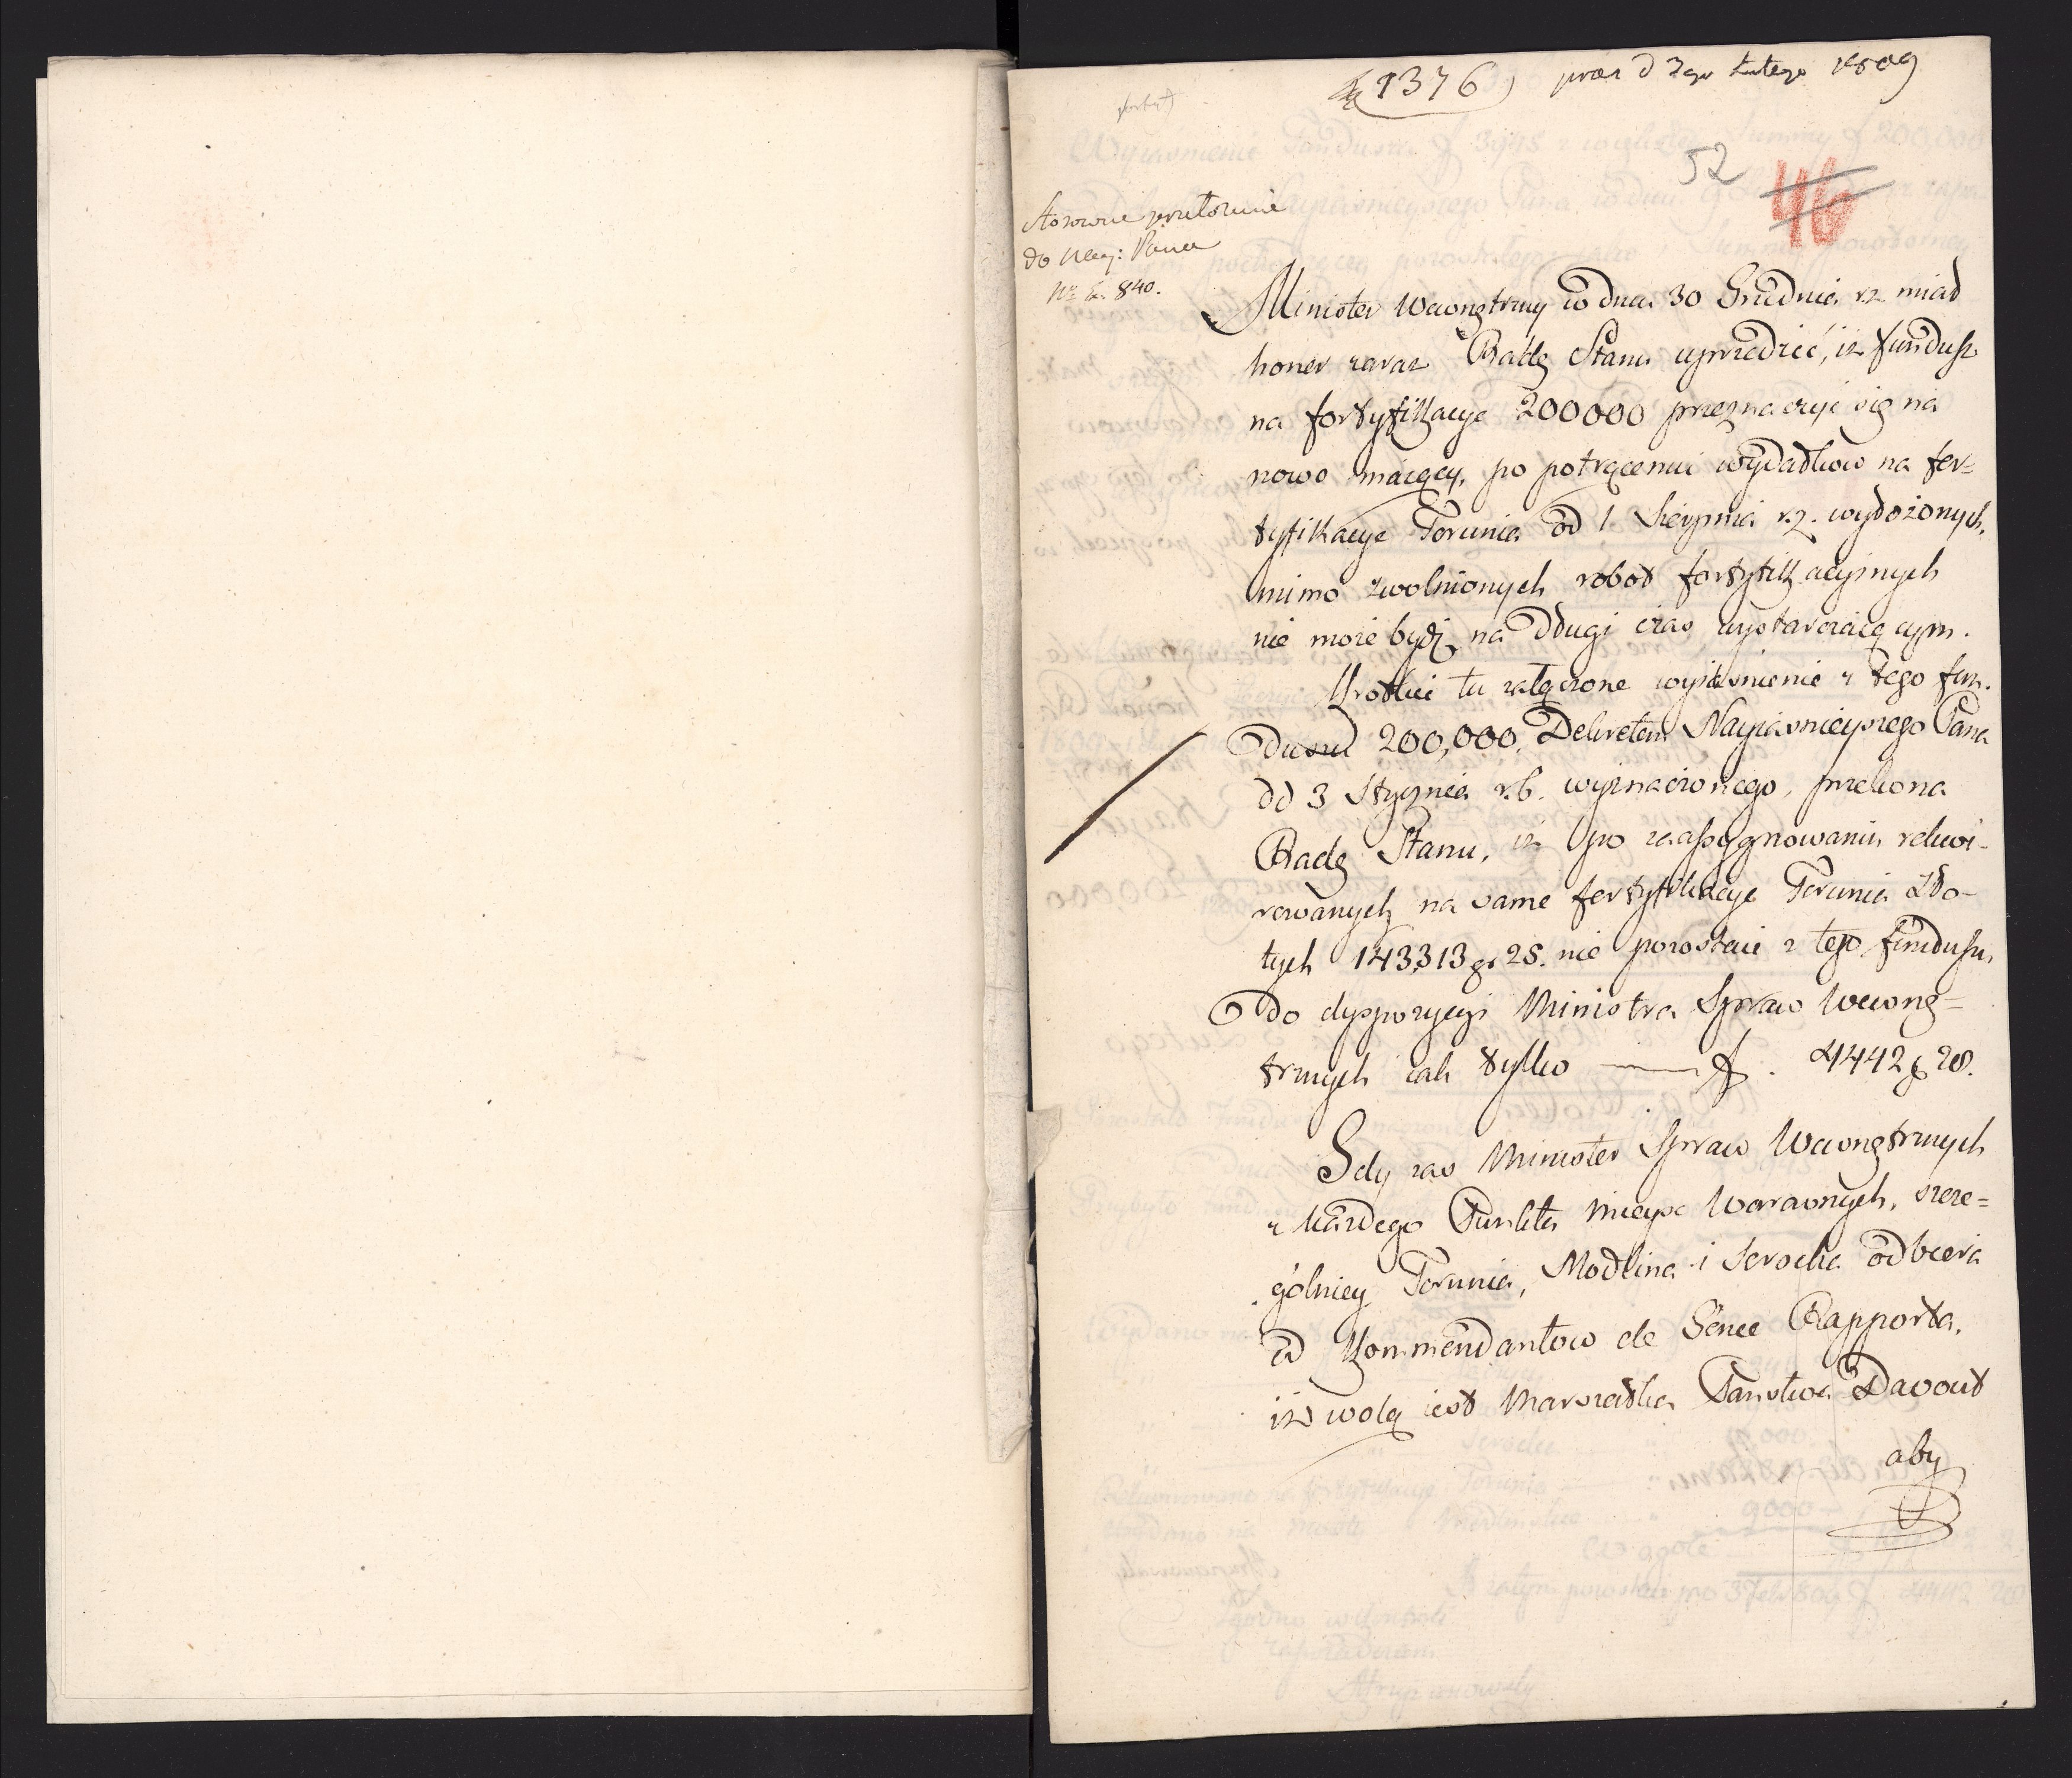 1376) præs d 3go Lutego 1809
52
46
Stosowne przełożenie
do Nay: Pana
Nro 840.
Minister Wewnętrzny w dniu 30 Grudnia r.z. miał
honor zaraz Radę Stanu uprzedzić, iż fundusz
na fortyfikacye 200000 przeznaczyć się na
nowo maiący, po potrąceniu wydatków na for=
tyfikacye Torunia od 1. Sierpnia r.z. wyłożonych,
mimo zwolnionych robot fortyfikacyinych
nie może bydź na długi czas wystarczaiącym.
Krotkie tu załączone wyiaśnienie z tego fun-
duszu 200,000. Dekretem Nayiaśnieyszego Pana
dd 3 Stycznia r.b. wyznaczonego, przekona
Radę Stanu, iż po zaassygnowaniu rekwi-
rowanych na same fortyfikacye Torunia zło-
tych 143313 gr 28. nie pozostaie z tego funduszu,
do dyspozycyi Ministra Spraw Wewnę=
trznych iak tylko —— f. 4442 g 28.
Gdy zas Minister Spraw Wewnętrznych
z każdego Punktu mieysc Warownych, szcze=
gólniey Torunia, Modlina i Serocka odbiera
od Kommendantow de Genie Rapporta,
iż wolą iest Marszałka Państwa Davout
aby